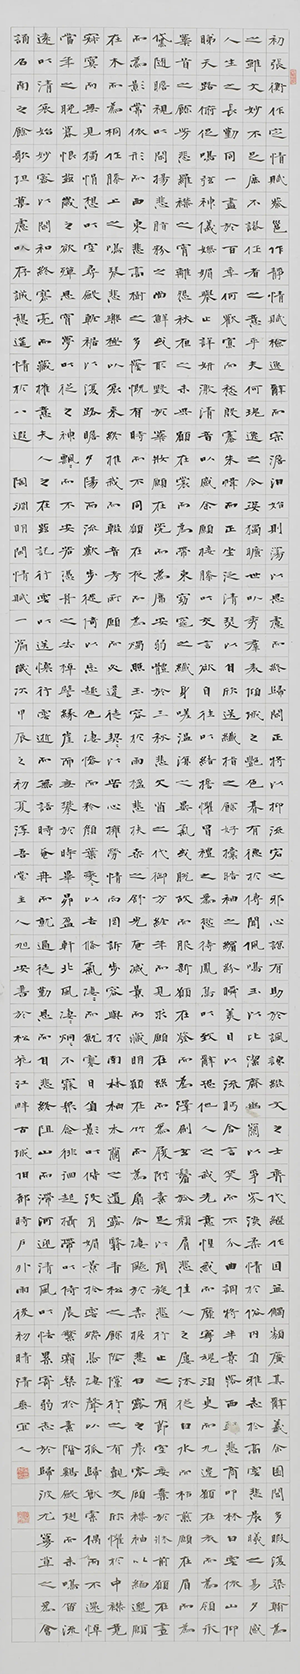 初張衡作定情賦蔡邕作靜情賦檢逸辭而宗澹泊始則蕩以思慮而終歸閑正將以抑流宕之邪心諒有助於諷諫綴文之士奕代繼作因並觸類廣其辭義余園閭多暇復染翰為
之雖文妙不足庶不謬作者之意乎夫何瓌逸之令姿獨曠世以秀群表傾城之艷色期有德於傳聞佩鳴玉以比潔齊幽蘭以爭芬淡柔情於俗內負雅志於高雲悲晨曦之易夕感
人生之長勤同一盡於百年何歡寡而愁殷褰朱幃而正坐泛清瑟以自欣送纖指之餘好攘皓袖之繽紛瞬美目以流眄含言笑而不分曲調將半景落西軒悲商叩林白雲依山仰
睇天路俯促鳴弦神儀嫵媚舉止詳妍激清音以感余願接膝以交言欲自往以結誓懼冒禮之為愆待鳳鳥以致辭恐他人之我先意惶惑而靡寧魂須臾而九遷願在衣而為領承
華首之餘芳悲羅襟之宵離怨秋夜之未央願在裳而為帶束窈窕之纖身嗟溫涼之異氣或脫故而服新願在髮而為澤刷玄鬢於頹肩悲佳人之屢沐從白水而枯煎願在眉而為
黛隨瞻視以閑揚悲脂粉之尚鮮或取毀於華妝願在莞而為席安弱體於三秋悲文茵之代御方經年而見求願在絲而為履附素足以周旋悲行止之有節空委棄於床前願在晝
而為影常依形而西東悲高樹之多蔭慨有時而不同願在夜而為燭照玉容於兩楹悲扶桑之舒光奄滅景而藏明願在竹而為扇含淒飆於柔握悲白露之晨零顧襟袖以緬邈願
在木而為桐作膝上之鳴琴悲樂極以哀來終推我而輟音考所願而必違徒契契以苦心擁勞情而罔訴步容與於南林栖木蘭之遺露翳青松之餘陰儻行行之有覿交欣懼於中襟竟
寂寞而無見獨悁想以空尋斂輕裾以復路瞻夕陽而流歎步徙倚以忘趣色慘悽而矜顏葉燮燮以去條氣淒淒而就寒日負影以偕沒月媚景於雲端鳥悽聲以孤歸獸索偶而不還悼
當年之晚暮恨茲歲之欲殫思宵夢以從之神飄颻而不安若憑舟之失棹譬緣崖而無攀於時畢昴盈軒北風淒淒炯炯不寐眾念徘徊起攝帶以伺晨繁霜粲於素階雞斂翅而未鳴笛流
遠以清哀始妙密以閑和終寥亮而藏摧意夫人之在茲託行雲以送懷行雲逝而無語時奄冉而就過徒勤思以自悲終阻山而滯河迎清風以袪累寄弱志於歸波尤蔓草之為會
誦召南之餘歌坦萬慮以存誠憩遙情於八遐 陶淵明閑情賦一篇歲次甲辰之初夏淳吾堂主人旭安書於松花江畔古城伯都時戶外雨後初晴清宜人